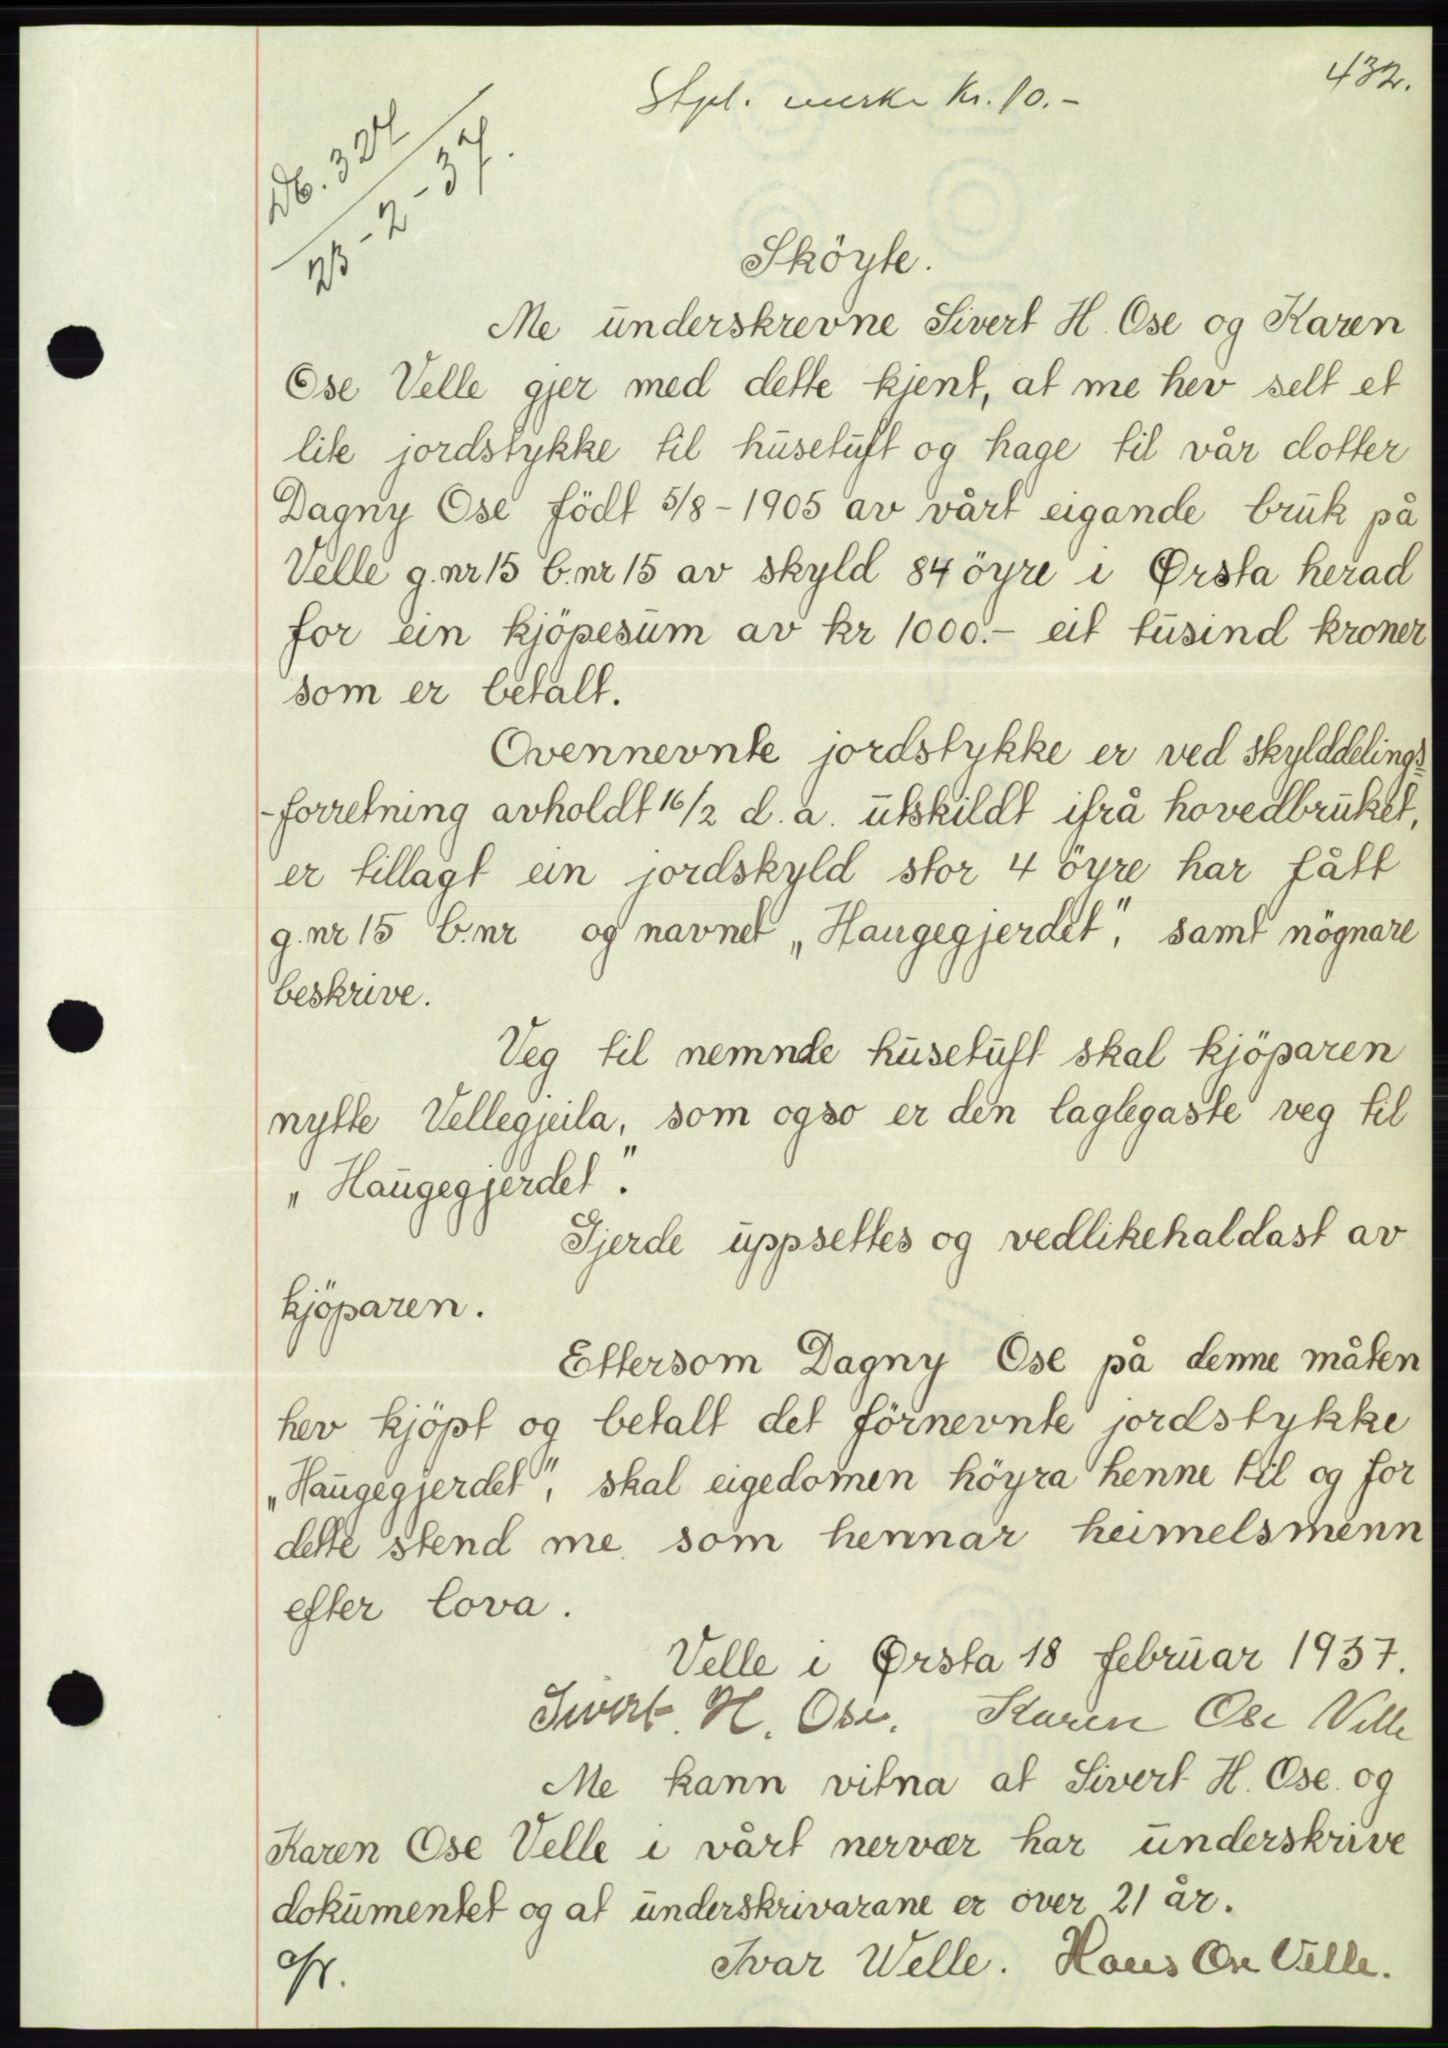 432.
Stpl. merke Kr. 10.-
Db. 327
23-2-37.
Sköyte.
Me underskrevne Sivert H. Ose og Karen
Ose Velle gjer med dette kjent, at me hev selt et
lite jordstykke til husetuft og hage til vår dotter
Dagny Ose födt 5/8-1905 av vårt eigande bruk på
Velle g.nr 15 b.nr 15 av skyld 84 öyre i Ørsta herad
for ein kjöpesum av kr 1000.- eit tusind kroner
som er betalt.
Ovennevnte jordstykke er ved skylddelings=
-forretning avholdt 16/2 d. a. utskildt ifrå hovedbruket,
er tillagt ein jordskyld stor 4 öyre har fått
g.nr 15 b.nr og navnet „Haugegjerdet", samt nögnare
beskrive.
Veg til nemnde husetuft skal kjöparen
nytte Vellegjeila, som ogso er den laglegaste veg til
„Haugegjerdet".
Gjerde uppsettes og vedlikehaldast av
kjöparen.
Ettersom Dagny Ose på denne måten
hev kjöpt og betalt det förnevnte jordstykke
„Haugegjerdet", skal eigedomen höyra henne til og for
dette stend me som hennar heimelsmenn
efter lova.
Velle i Ørsta 18 februar 1937.
Sivert. H. Ose. Karen Ose Velle
Me kann vitna at Sivert H. Ose og
Karen Ose Velle i vårt nervær har underskrive
dokumentet og at underskrivarane er over 21 år.
Ivar Welle. Hans Ose Velle.